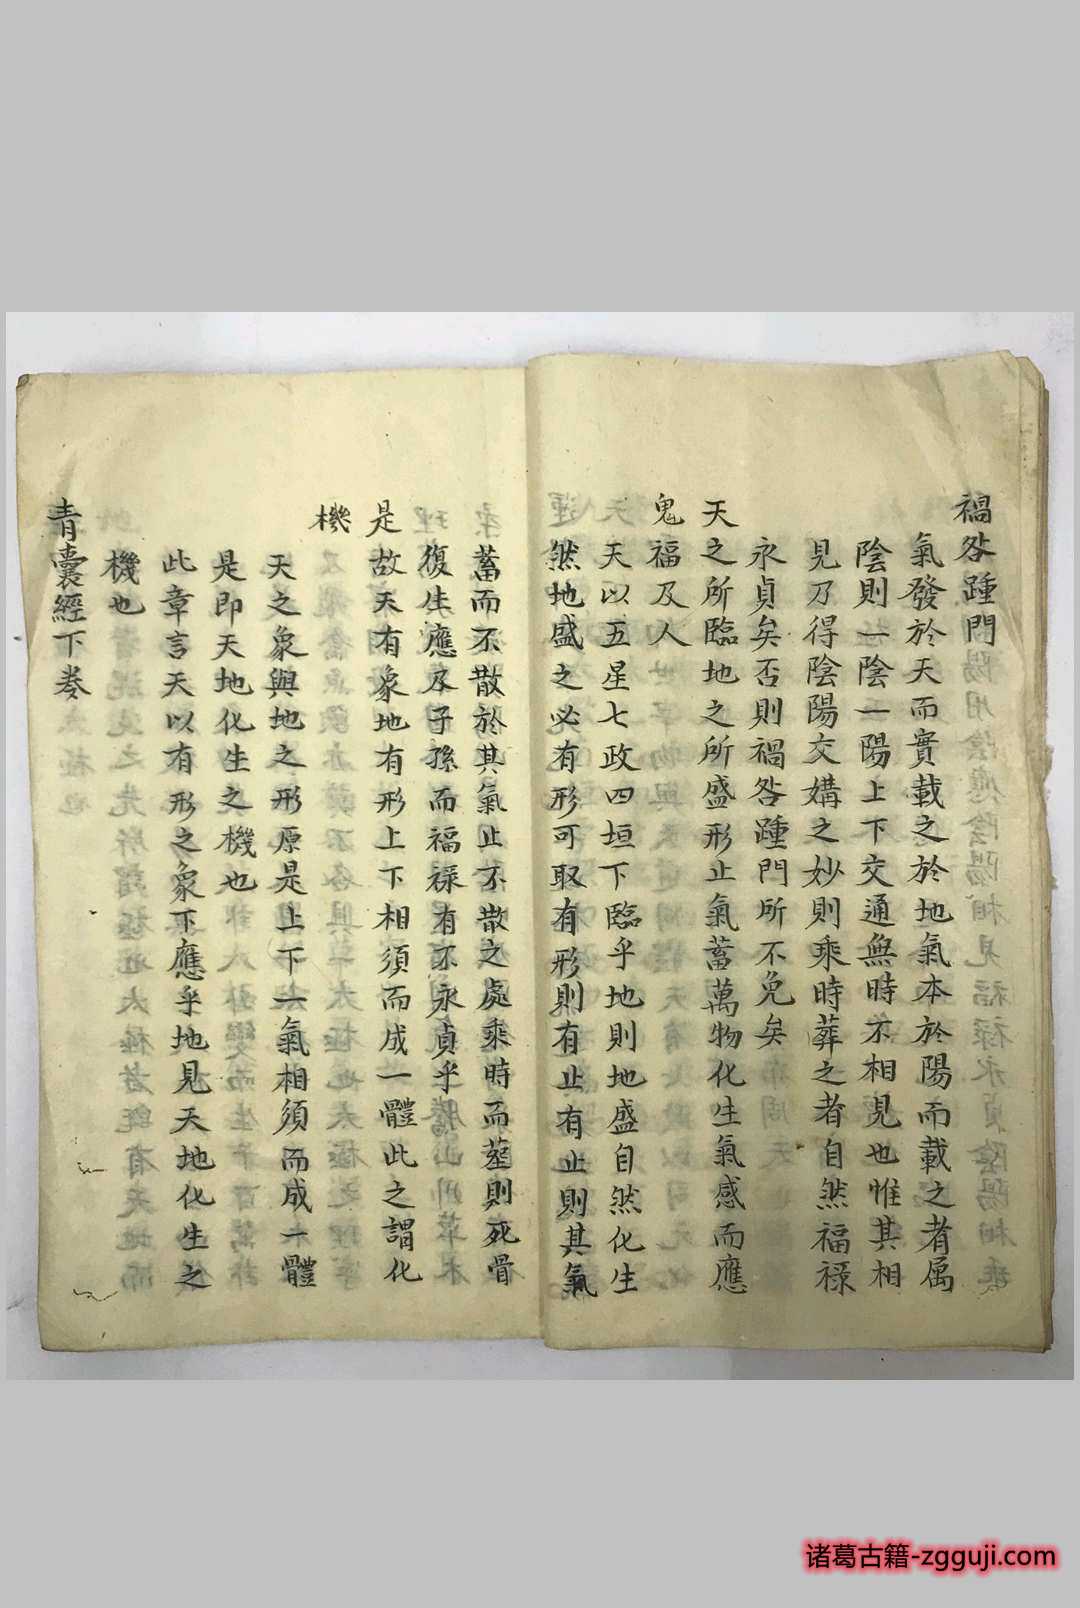 禍咎踵門
氣發於天而實載之於地氣本於陽而載之者属
陰則一陰一陽上下交通無時不相見也惟其相
見乃得陰陽交媾之妙則乘時葬之者自然福禄
永貞矣否則禍咎踵門所不免矣
天之所臨地之所盛形止氣蓄萬物化生氣感而應
鬼福及人
天以五星七政四垣下臨乎地則地盛自然化生
然地盛之必有形可取有形則有止有止則其氣
蓄而不散於其氣止不散之處乘時而葬則死骨
復生應及子孫而福禄有不永貞乎
是故天有象地有形上下相須而成一體此之謂化
機
天之象與地之形原是上下一氣相須而成一體
是即天地化生之機也
此章言天以有形之象下應乎地見天地化生之
機也
青囊經下卷
诸葛古籍-zgguji.com